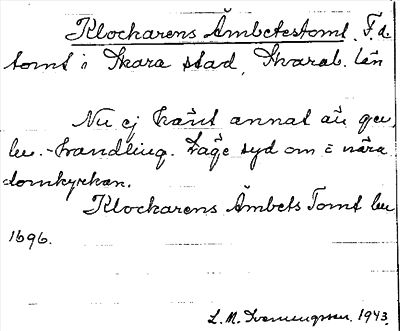 Klockarens Ämbetestomt. F.d.
tomt i Skara stad, Skarab. län
Nu ej känt annat än gm
bev.-handling. Läge syd om = nära
domkyrkan.
Klockarens Ämbets Tomt bev
1696.
L. M. Svenungsson. 1943.